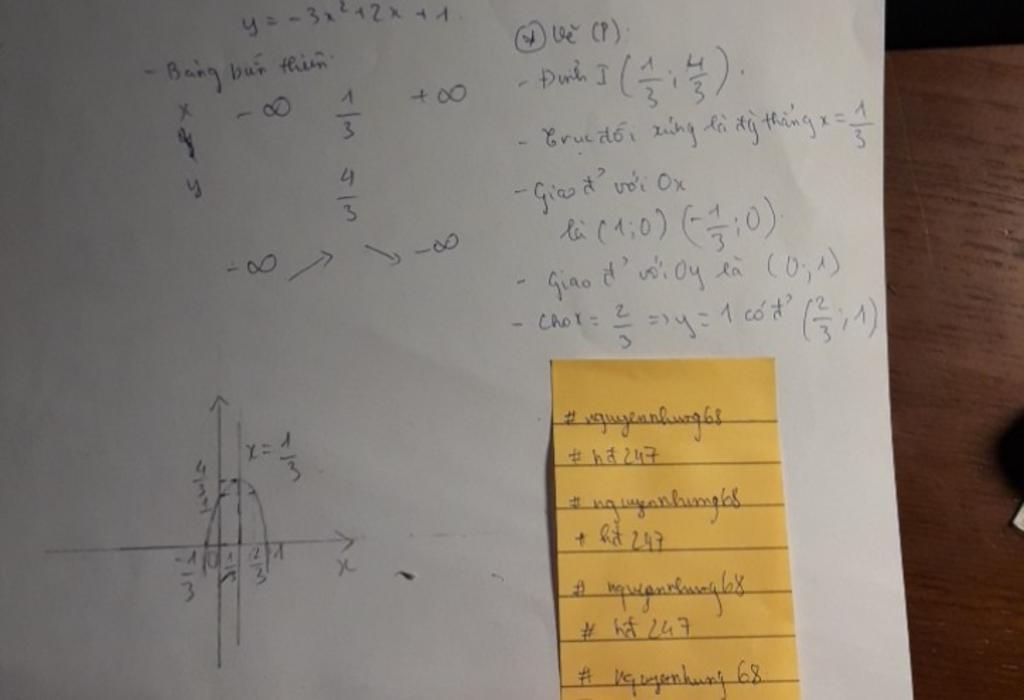 y = -3x² + 2x + 1
- Bảng biến thiên
x -∞ 1/3 +∞
y 4/3
-∞ ↗ ↘ -∞
* Vẽ (P):
- Đỉnh I (1/3; 4/3).
- Trục đối xứng là đg thẳng x = 1/3
- Giao đ' với Ox
là (1;0) (-1/3; 0)
- Giao đ' với Oy là (0;1)
- Cho x = 2/3 => y = 1 có đ' (2/3; 1)
x = 1/3
4/3
1
-1/3 0 1/3 2/3 1
x
# nguyennhung68
# hđ247
# nguyennhung68
# hđ247
# nguyennhung68
# hđ247
# nguyennhung68